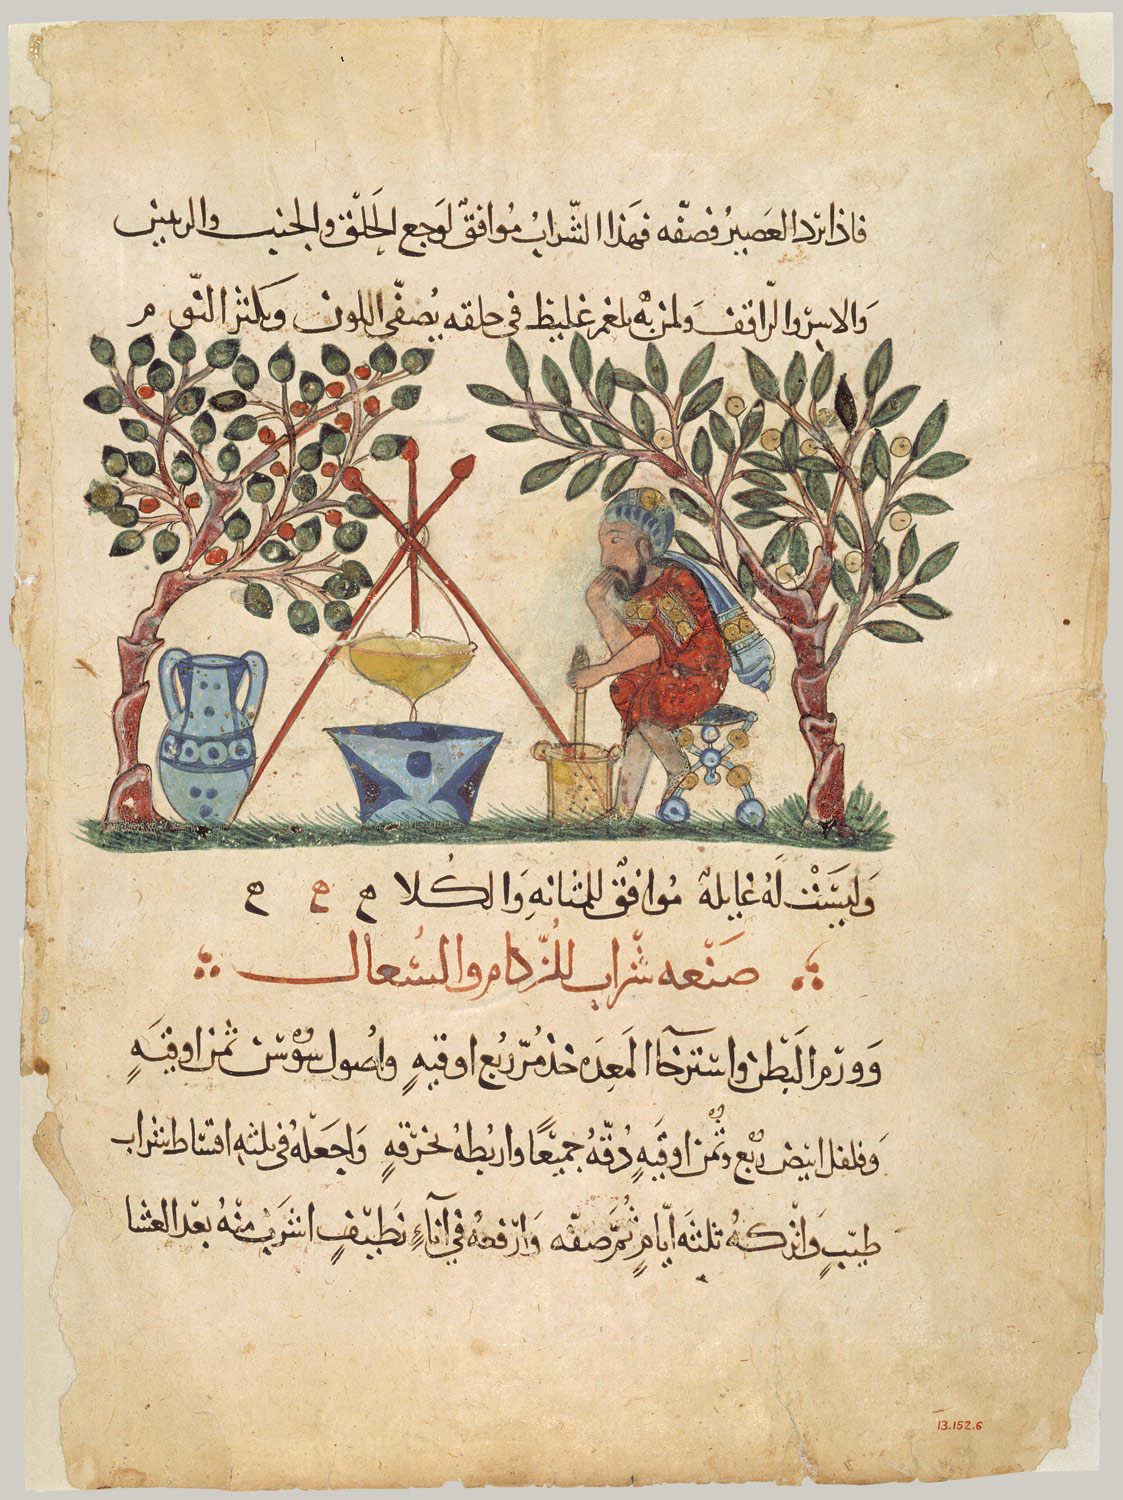 فاذا برد العصير فصفه فهذا الشراب موافق لوجع الحلق والجنب والرئتين
والارقف ولمن به بلغم غليظ في حلقه يصفي اللون ويكثر النوم
وَليسَتْ لَهُ غايلة مُوافقٌ للمثانه وَالكُلا ح ح ح
صَنْعه شراب للزكام والسُعال
وَورم البَطن واسترخا المعِدَه خذ مُرّ ربُع اوقيهٍ واصُول سوسن ثمن اوقيَهٍ
وَفلفل ابيض رُبع وثُمن اوقيَهٍ دُقّهُ جميعًا واربُطهُ بخرقهٍ وَاجعَلهُ في ثلثه اقساط شراب
طيّبٍ وَاتركهُ ثلثه ايّامٍ ثُمّ صفّه وَارفعهُ في اناءٍ نظيفٍ اشرب منهُ بعد العشا
13.152.6